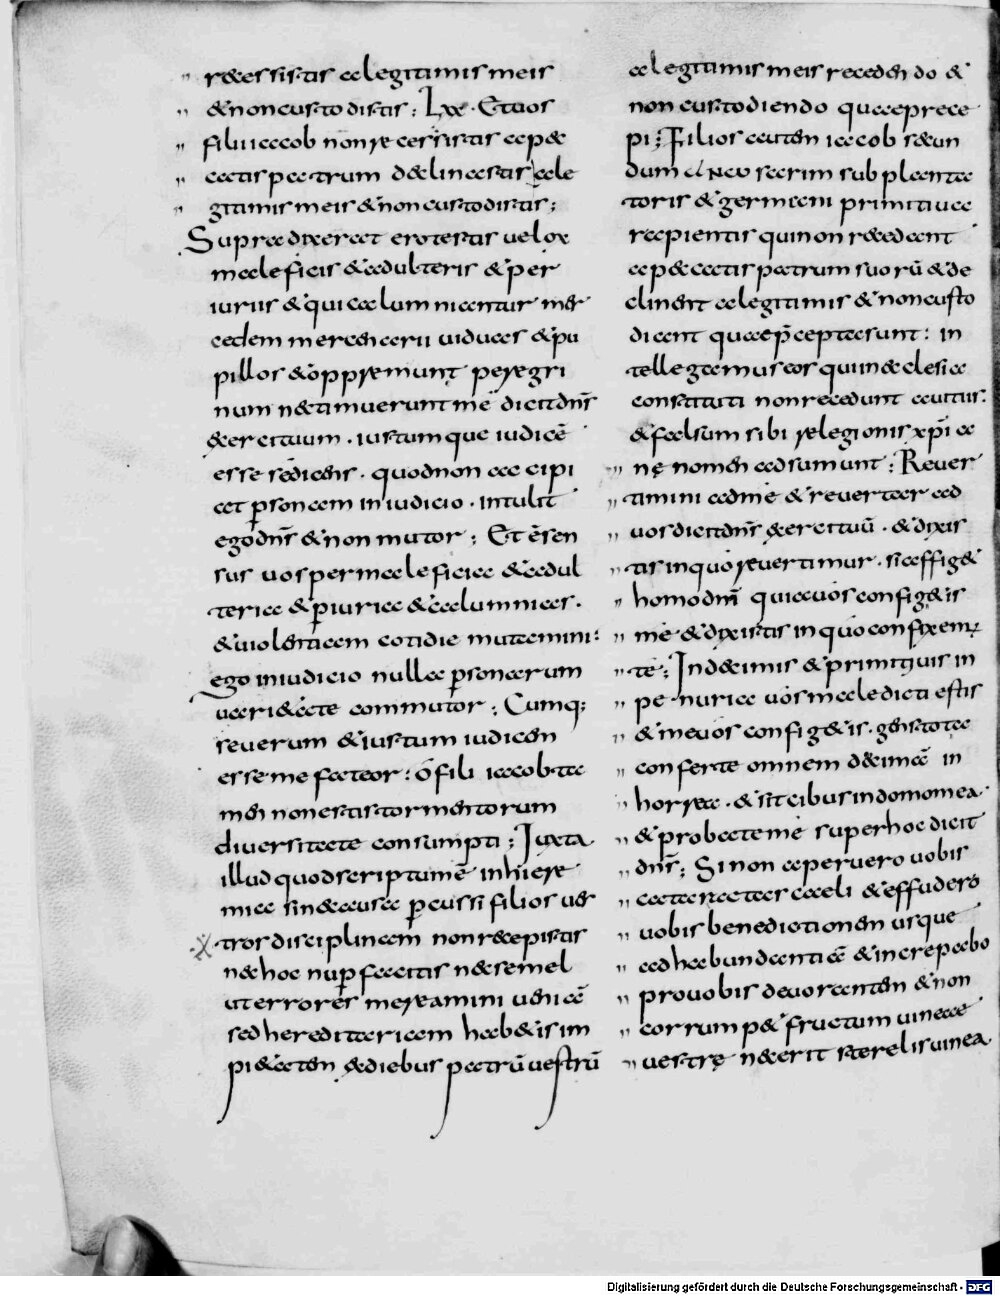 " recessistis a legitimis meis
" & non custodistis : Lxx . Et uos
" filii iacob non recessistis ap&
" catis patrum declinastis a le
" gitimis meis & non custodistis ;
Supra dixerat ero testis uelox
maleficis & adulteris & per
iuriis & qui calumniantur mer
cedem mercenarii uiduas & pu
pillos & opprimunt peregri
num nec timuerunt me dicit dns̄
exercituum . iustum que iudicē
esse se dicens . quod non accipi
at psonam in iudicio . intulit
ego dns̄ & non mutor ; Et ē sen
sus uos per maleficia & adul
teria & piuria & calumnias .
& uiolentiam cotidie mutamini :
ego in iudicio nulla psonarum
uari&ate commutor ; Cumq;
seuerum & iustum iudicem
esse me fateor : ō fili iacob ta
men non estis tormentorum
diuersitate consumpti ; Iuxta
illud quod scriptum ē in hiere
mia sine causa pcussi filios ues
tros disciplinam non recepistis
nec hoc nup facitis nec semel
ut errores mereamini ueniā
sed hereditariam hab&is im
pi&atem ex diebus patrū uestrū
a legitimis meis recedendo &
non custodiendo quae prece
pi ; Filios autem iacob secun
dum sacrim sub planta
toris & germani primitiua
rapientis qui non recedant
ap&catis patrum suorū & de
clinent a legitimis & non custo
diant quae p̄cepta sunt : in
tellegamus eos qui in ecclesia
constituti non recedunt a uitiis :
& falsum sibi relegionis xp̄ia
" nę nomen adsumunt : Reuer
" timini ad me & reuertar ad
" uos dicit dns̄ exercituū . & dixis
" tis in quo reuertimur . si affig&
" homo dm̄ quia uos configitis
" me & dixistis in quo confiximus
" te ; In decimis & primitiuis in
" penuria uos maledicti estis
" & me uos configitis . gens tota
" conferte omnem decimā in
" horrea . & sit cibus in domo mea
" & probate me super hoc dicit
" dns̄ ; Si non aperuero uobis
" cataractas caeli & effudero
" uobis benedictionem usque
" ad habundantiā & increpabo
" pro uobis deuorantem & non
" corrump& fructum uineae
" uestrę nec erit sterelis uinea
Digitalisierung gefördert durch die Deutsche Forschungsgemeinschaft - DFG